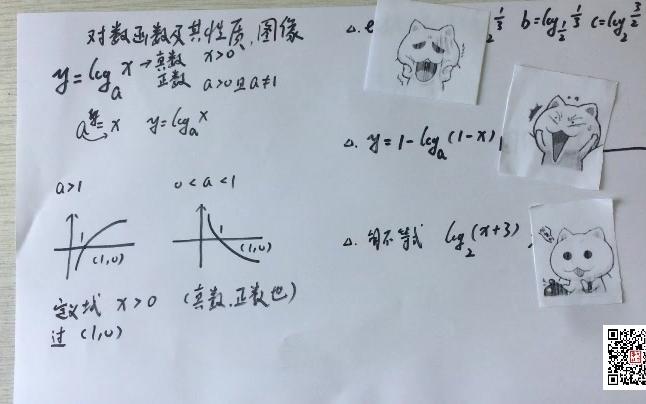 对数函数及其性质,图像
y=log_a x → 真数 x>0
正数 a>0且a≠1
a^y=x y=log_a x
a>1
0<a<1
1
(1,0)
1
(1,0)
定义域 x>0 (真数,正数也)
过 (1,0)
△. 1/3 b=log_{1/2} 1/3 c=log_2 3/2
△. y=1-log_a(1-x)
△. 不等式 log_2(x+3)